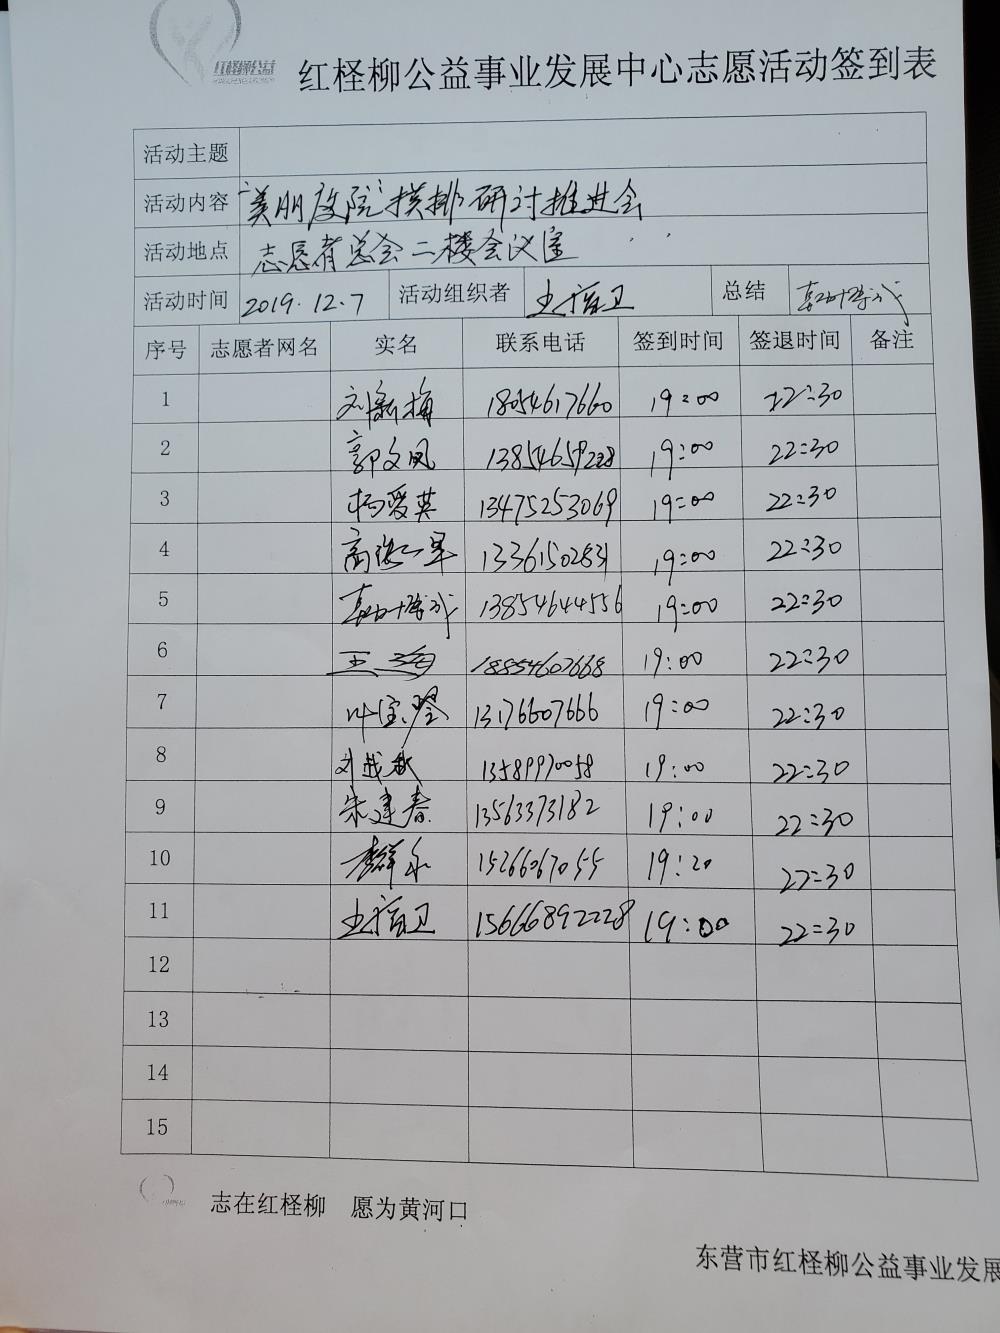 红柽柳公益
红柽柳公益事业发展中心志愿活动签到表
活动主题
活动内容 "美朋度院"摸排研讨推进会
活动地点 志愿者总会二楼会议室
活动时间 2019.12.7 活动组织者 总结
序号 志愿者网名 实名 联系电话 签到时间 签退时间 备注
1 刘新梅 18054617660 19:00 22:30
2 郭文凤 13854659228 19:00 22:30
3 杨爱英 13475253069 19:00 22:30
4 13361502831 19:00 22:30
5 13854644556 19:00 22:30
6 王海 18854607668 19:00 22:30
7 叶宝琴 13176607666 19:00 22:30
8 刘战秋 13589970058 19:00 22:30
9 宋建春 13563373182 19:00 22:30
10 李群永 15266067055 19:20 22:30
11 15666892228 19:00 22:30
12
13
14
15
志在红柽柳 愿为黄河口
东营市红柽柳公益事业发展